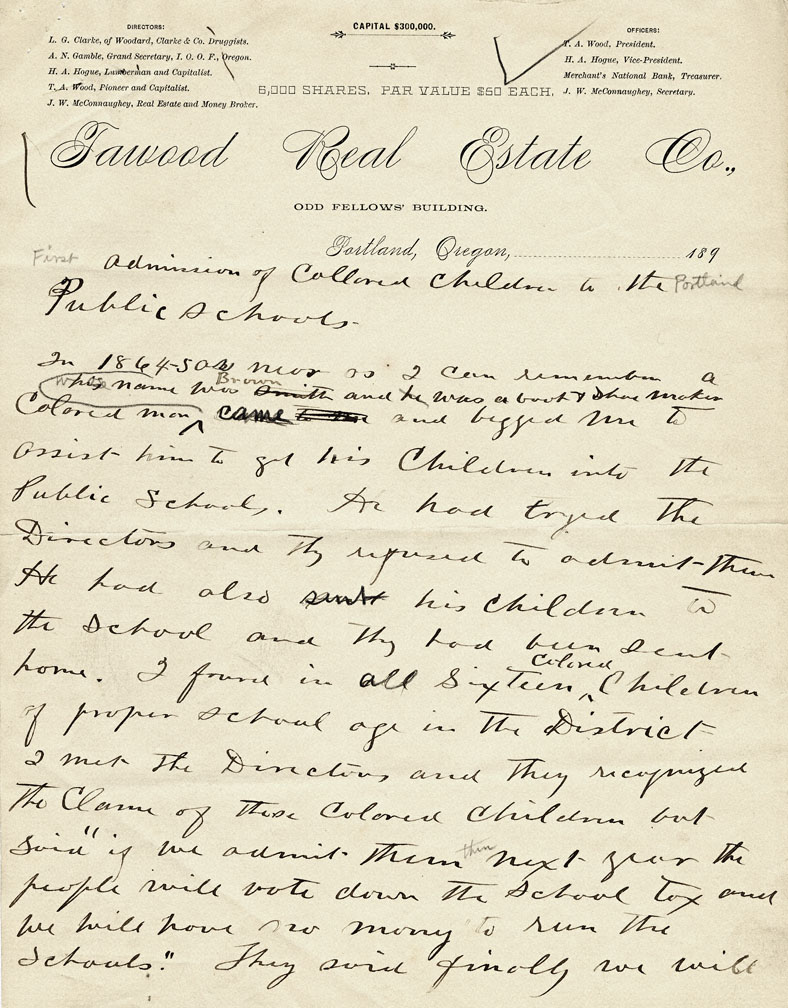 DIRECTORS:
L. G. Clarke, of Woodard, Clarke & Co. Druggists.
A. N. Gamble, Grand Secretary, I. O. O. F., Oregon.
H. A. Hogue, Lumberman and Capitalist.
T. A. Wood, Pioneer and Capitalist.
J. W. McConnaughey, Real Estate and Money Broker.
CAPITAL $300,000.
6,000 SHARES, PAR VALUE $50 EACH,
OFFICERS:
T. A. Wood, President.
H. A. Hogue, Vice-President.
Merchant's National Bank, Treasurer.
J. W. McConnaughey, Secretary.
Tawood Real Estate Co.,
ODD FELLOWS' BUILDING.
Portland, Oregon, 189
First admission of Collored Children to the Portland
Public Schools.
In 1864-5 as near as I can remember a
whose name was Brown Smith and he was a boot & Shoe maker
Colored man came to me and begged me to
assist him to get his Children into the
Public Schools. He had tryed the
Directors and thy refused to admit them
He had also sent his Children to
the School and thy had been sent
home. I found in all Sixteen Colored Children
of proper School age in the District
I met the Directors and they recognized
the Clame of these Colored Children but
said "if we admit them then next year the
people will vote down the School tax and
we will have no money to run the
Schools." They said finally we will